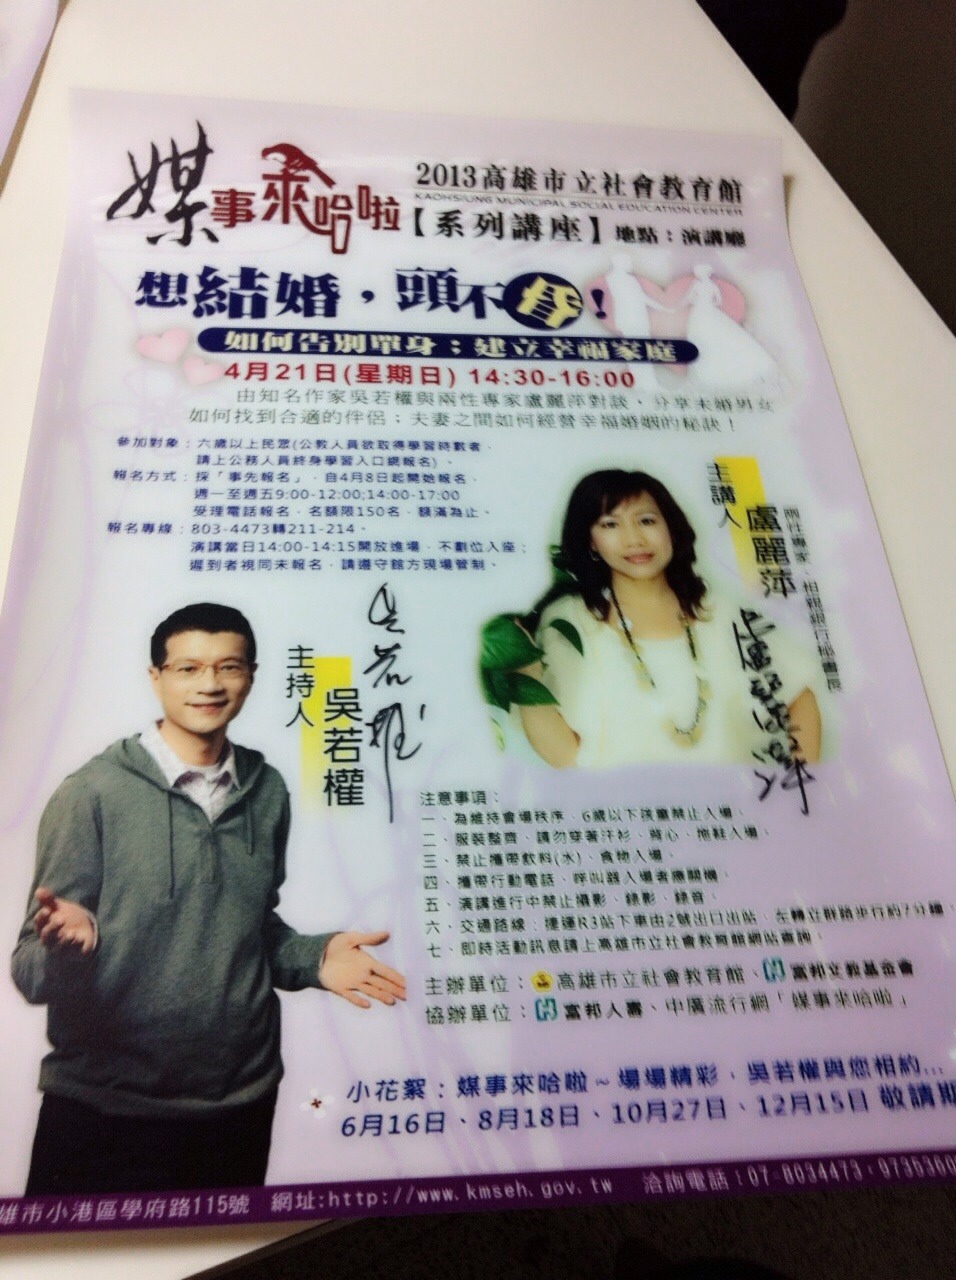 媒事來哈啦
2013高雄市立社會教育館
KAOHSIUNG MUNICIPAL SOCIAL EDUCATION CENTER
【系列講座】地點：演講廳
想結婚，頭不昏！
如何告別單身；建立幸福家庭
4月21日(星期日) 14:30-16:00
由知名作家吳若權與兩性專家盧麗萍對談，分享未婚男女
如何找到合適的伴侶；夫妻之間如何經營幸福婚姻的秘訣！
參加對象：六歲以上民眾(公教人員欲取得學習時數者，
請上公務人員終身學習入口網報名)。
報名方式：採「事先報名」，自4月8日起開始報名，
週一至週五9:00-12:00;14:00-17:00
受理電話報名，名額限150名，額滿為止。
報名專線：803-4473轉211-214。
演講當日14:00-14:15開放進場，不劃位入座；
遲到者視同未報名，請遵守館方現場管制。
主講人
盧麗萍
兩性專家、相親銀行秘書長
盧麗萍
主持人
吳若權
吳若權
注意事項：
一、為維持會場秩序，6歲以下孩童禁止入場。
二、服裝整齊，請勿穿著汗衫、背心、拖鞋入場。
三、禁止攜帶飲料(水)、食物入場。
四、攜帶行動電話、呼叫器入場者應關機。
五、演講進行中禁止攝影、錄影、錄音。
六、交通路線：捷運R3站下車由2號出口出站，左轉立群路步行約7分鐘。
七、即時活動訊息請上高雄市立社會教育館網站查詢。
主辦單位：高雄市立社會教育館、富邦文教基金會
協辦單位：富邦人壽、中廣流行網「媒事來哈啦」
小花絮：媒事來哈啦～場場精彩，吳若權與您相約...
6月16日、8月18日、10月27日、12月15日 敬請期
雄市小港區學府路115號 網址:http://www.kmseh.gov.tw 洽詢電話：07-8034473、9735360